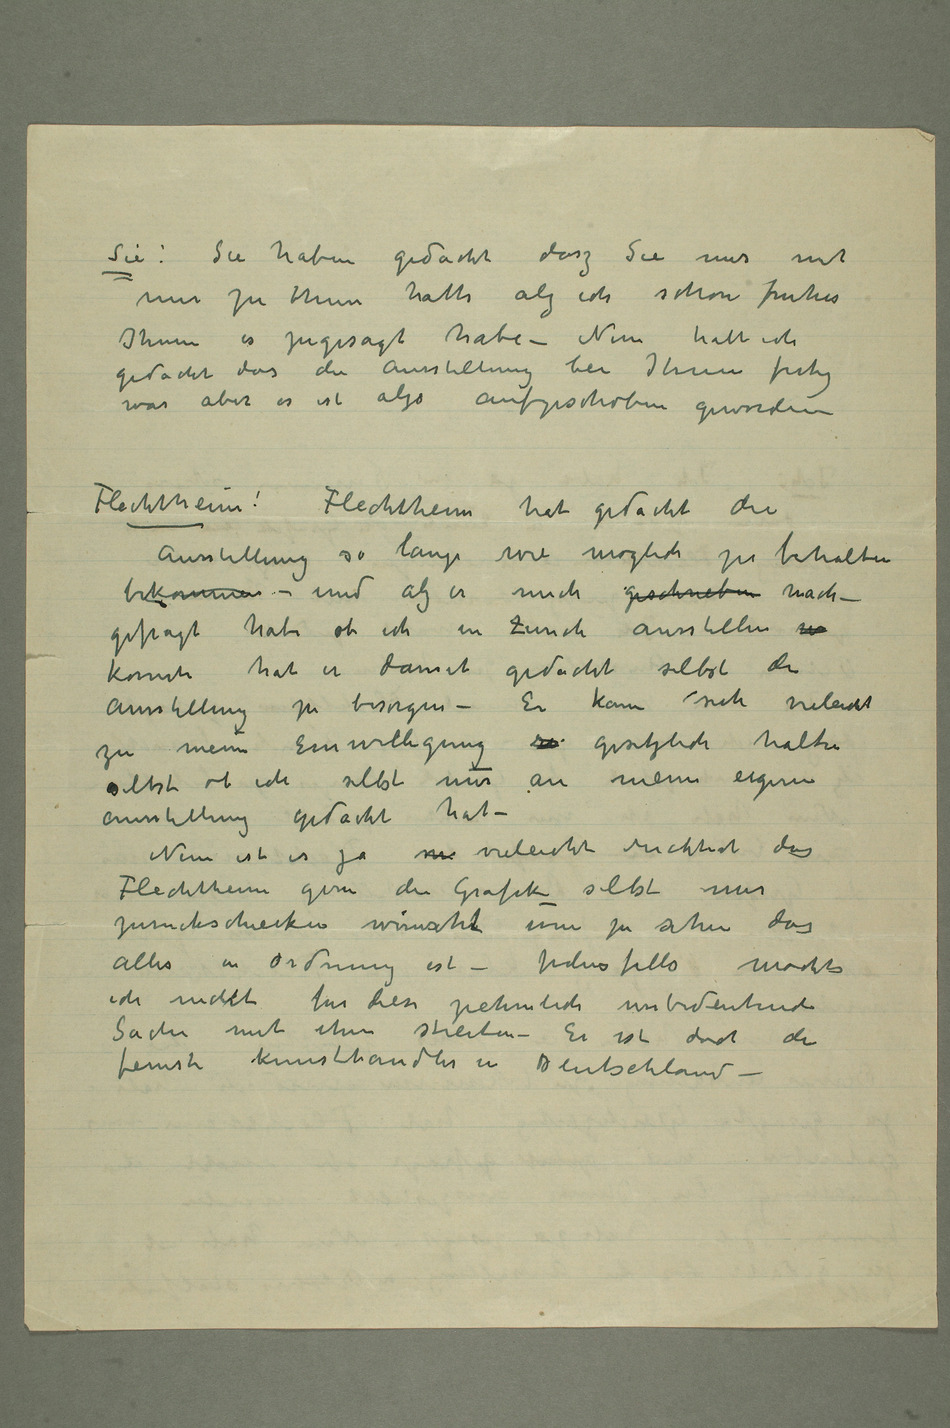 Sie! Sie haben gedacht dasz Sie nur mit
mir zu thun hatte alz ich schon fruher
Ihnen es zugesagt habe – Nun hatt ich
gedacht das die Ausstellung bei Ihnen fertig
war aber es ist alzo aufgeschoben geworden –
Flechtheim! Flechtheim hat gedacht die
Ausstellung so lange wie moglich zu behalten
bekommen – und alz er mich geschrieben nach–
gefragt hat ob ich in Zurich ausstellen
konnte hat er damit gedacht selbst die
Ausstellung zu besorgen – Er kann sich vieleicht
zu meine Einwilligung gesetzlich halten
selbst ob ich selbst nur an meine eigene
Ausstellung gedacht hat –
Nun ist es ja vieleicht das
Flechtheim gern die Grafik selbst nur
zuruckschicken wünscht um zu sehen das
alles in Ordnung ist – jedenfalls mochte
ich nicht fur diese unbedeutende
Sache mit ihm streiten – Er ist doch der
feinste Kunsthandler in Deutschland –